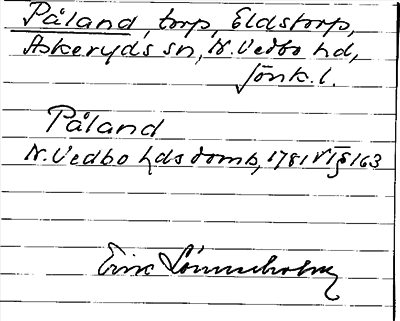 Påland, torp, Eldstorp,
Askeryds sn, N. Vedbo hd,
Jönk. l.
Påland
N. Vedbo hds domb, 1781 VI § 163
Erik Lönnerholm